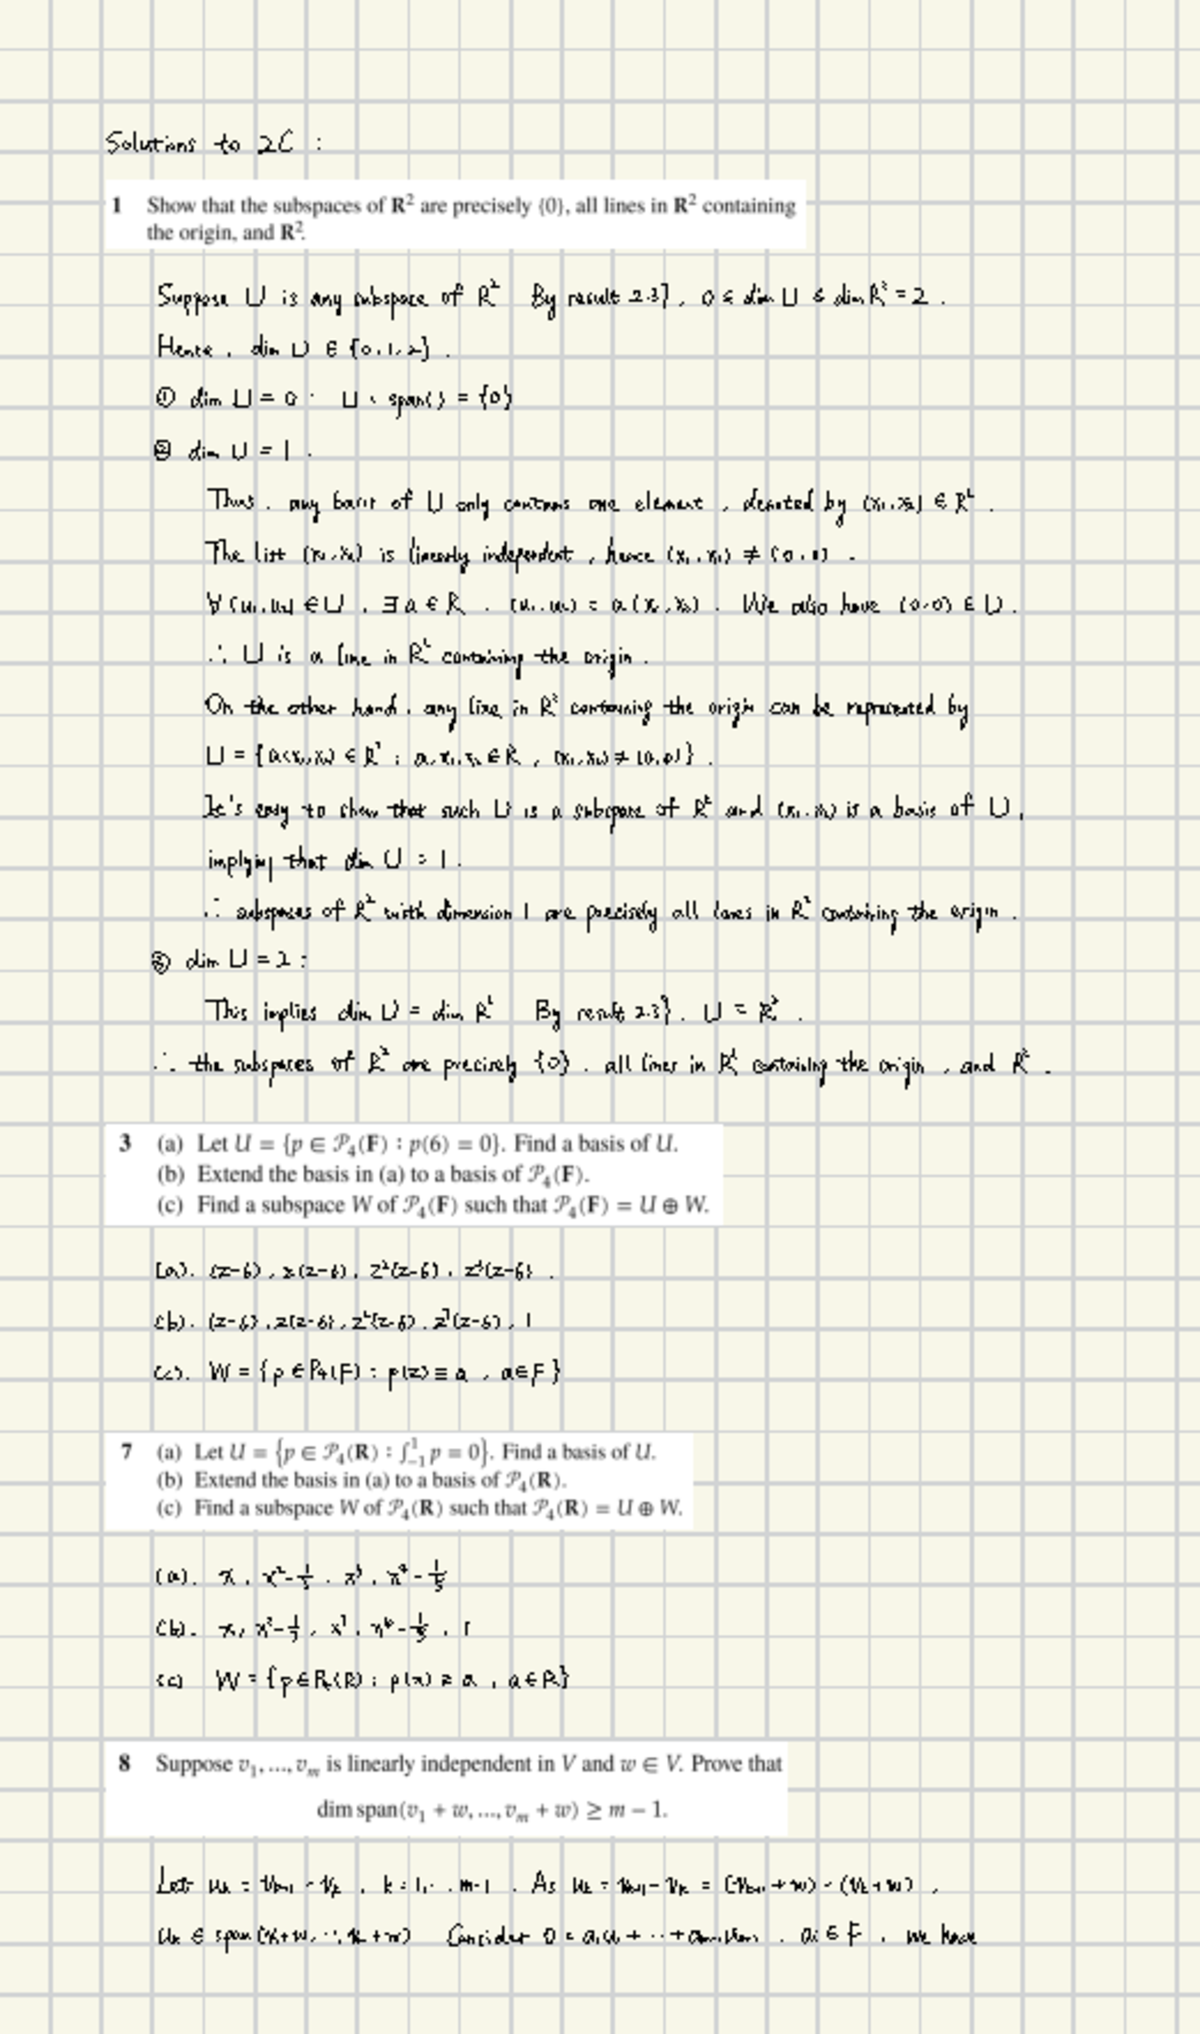 Solutions to 2C :
1 Show that the subspaces of R² are precisely {0}, all lines in R² containing
the origin, and R².
Suppose U is any subspace of R² By result 2.37, 0 ≤ dim U ≤ dim R² = 2 .
Hence, dim U ∈ {0,1,2} .
① dim U = 0 : U = span() = {0}
② dim U = 1 .
Thus, any basis of U only contains one element, denoted by (x₁,x₂) ∈ R² .
The list (x₁,x₂) is linearly independent, hence (x₁,x₂) ≠ (0,0) .
∀ (u₁,u₂) ∈ U , ∃ a ∈ R . (u₁,u₂) = a(x₁,x₂) . We also have (0,0) ∈ U .
∴ U is a line in R² containing the origin .
On the other hand, any line in R² containing the origin can be represented by
U = {a(x₁,x₂) ∈ R² : a,x₁,x₂ ∈ R , (x₁,x₂) ≠ (0,0)} .
It's easy to show that such U is a subspace of R² and (x₁,x₂) is a basis of U,
implying that dim U = 1 .
∴ subspaces of R² with dimension 1 are precisely all lines in R² containing the origin .
③ dim U = 2 :
This implies dim U = dim R² By result 2.39, U = R² .
∴ the subspaces of R² are precisely {0}, all lines in R² containing the origin, and R² .
3 (a) Let U = {p ∈ 𝒫₄(F) : p(6) = 0}. Find a basis of U.
(b) Extend the basis in (a) to a basis of 𝒫₄(F).
(c) Find a subspace W of 𝒫₄(F) such that 𝒫₄(F) = U ⊕ W.
(a). (z-6) , z(z-6) , z²(z-6) , z³(z-6) .
(b). (z-6) , z(z-6) , z²(z-6) , z³(z-6) , 1
(c). W = {p ∈ P₄(F) : p(z) ≡ a , a∈F}
7 (a) Let U = {p ∈ 𝒫₄(R) : ∫₋₁¹ p = 0}. Find a basis of U.
(b) Extend the basis in (a) to a basis of 𝒫₄(R).
(c) Find a subspace W of 𝒫₄(R) such that 𝒫₄(R) = U ⊕ W.
(a). x , x²-1/3 , x³ , x⁴-1/5
(b). x, x²-1/3 , x³ , x⁴-1/5 , 1
(c) W = {p∈P₄(R) : p(x) ≡ a , a∈R}
8 Suppose v₁, ..., vₘ is linearly independent in V and w ∈ V. Prove that
dim span(v₁ + w, ..., vₘ + w) ≥ m − 1.
Let uₖ = vₖ₊₁ - vₖ , k = 1,..., m-1 . As uₖ = vₖ₊₁ - vₖ = (vₖ₊₁ + w) - (vₖ + w) ,
uₖ ∈ span Consider 0 = a₁u₁ + ... + aₘ₋₁uₘ₋₁ , aᵢ ∈ F , we have